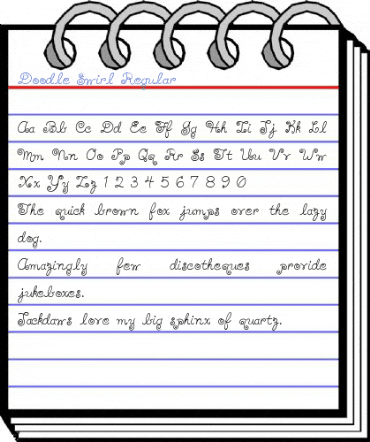 Doodle Swirl Regular
Aa Bb Cc Dd Ee Ff Gg Hh Ii Jj Kk Ll
Mm Nn Oo Pp Qq Rr Ss Tt Uu Vv Ww
Xx Yy Zz 1 2 3 4 5 6 7 8 9 0
The quick brown fox jumps over the lazy
dog.
Amazingly few discotheques provide
jukeboxes.
Jackdaws love my big sphinx of quartz.